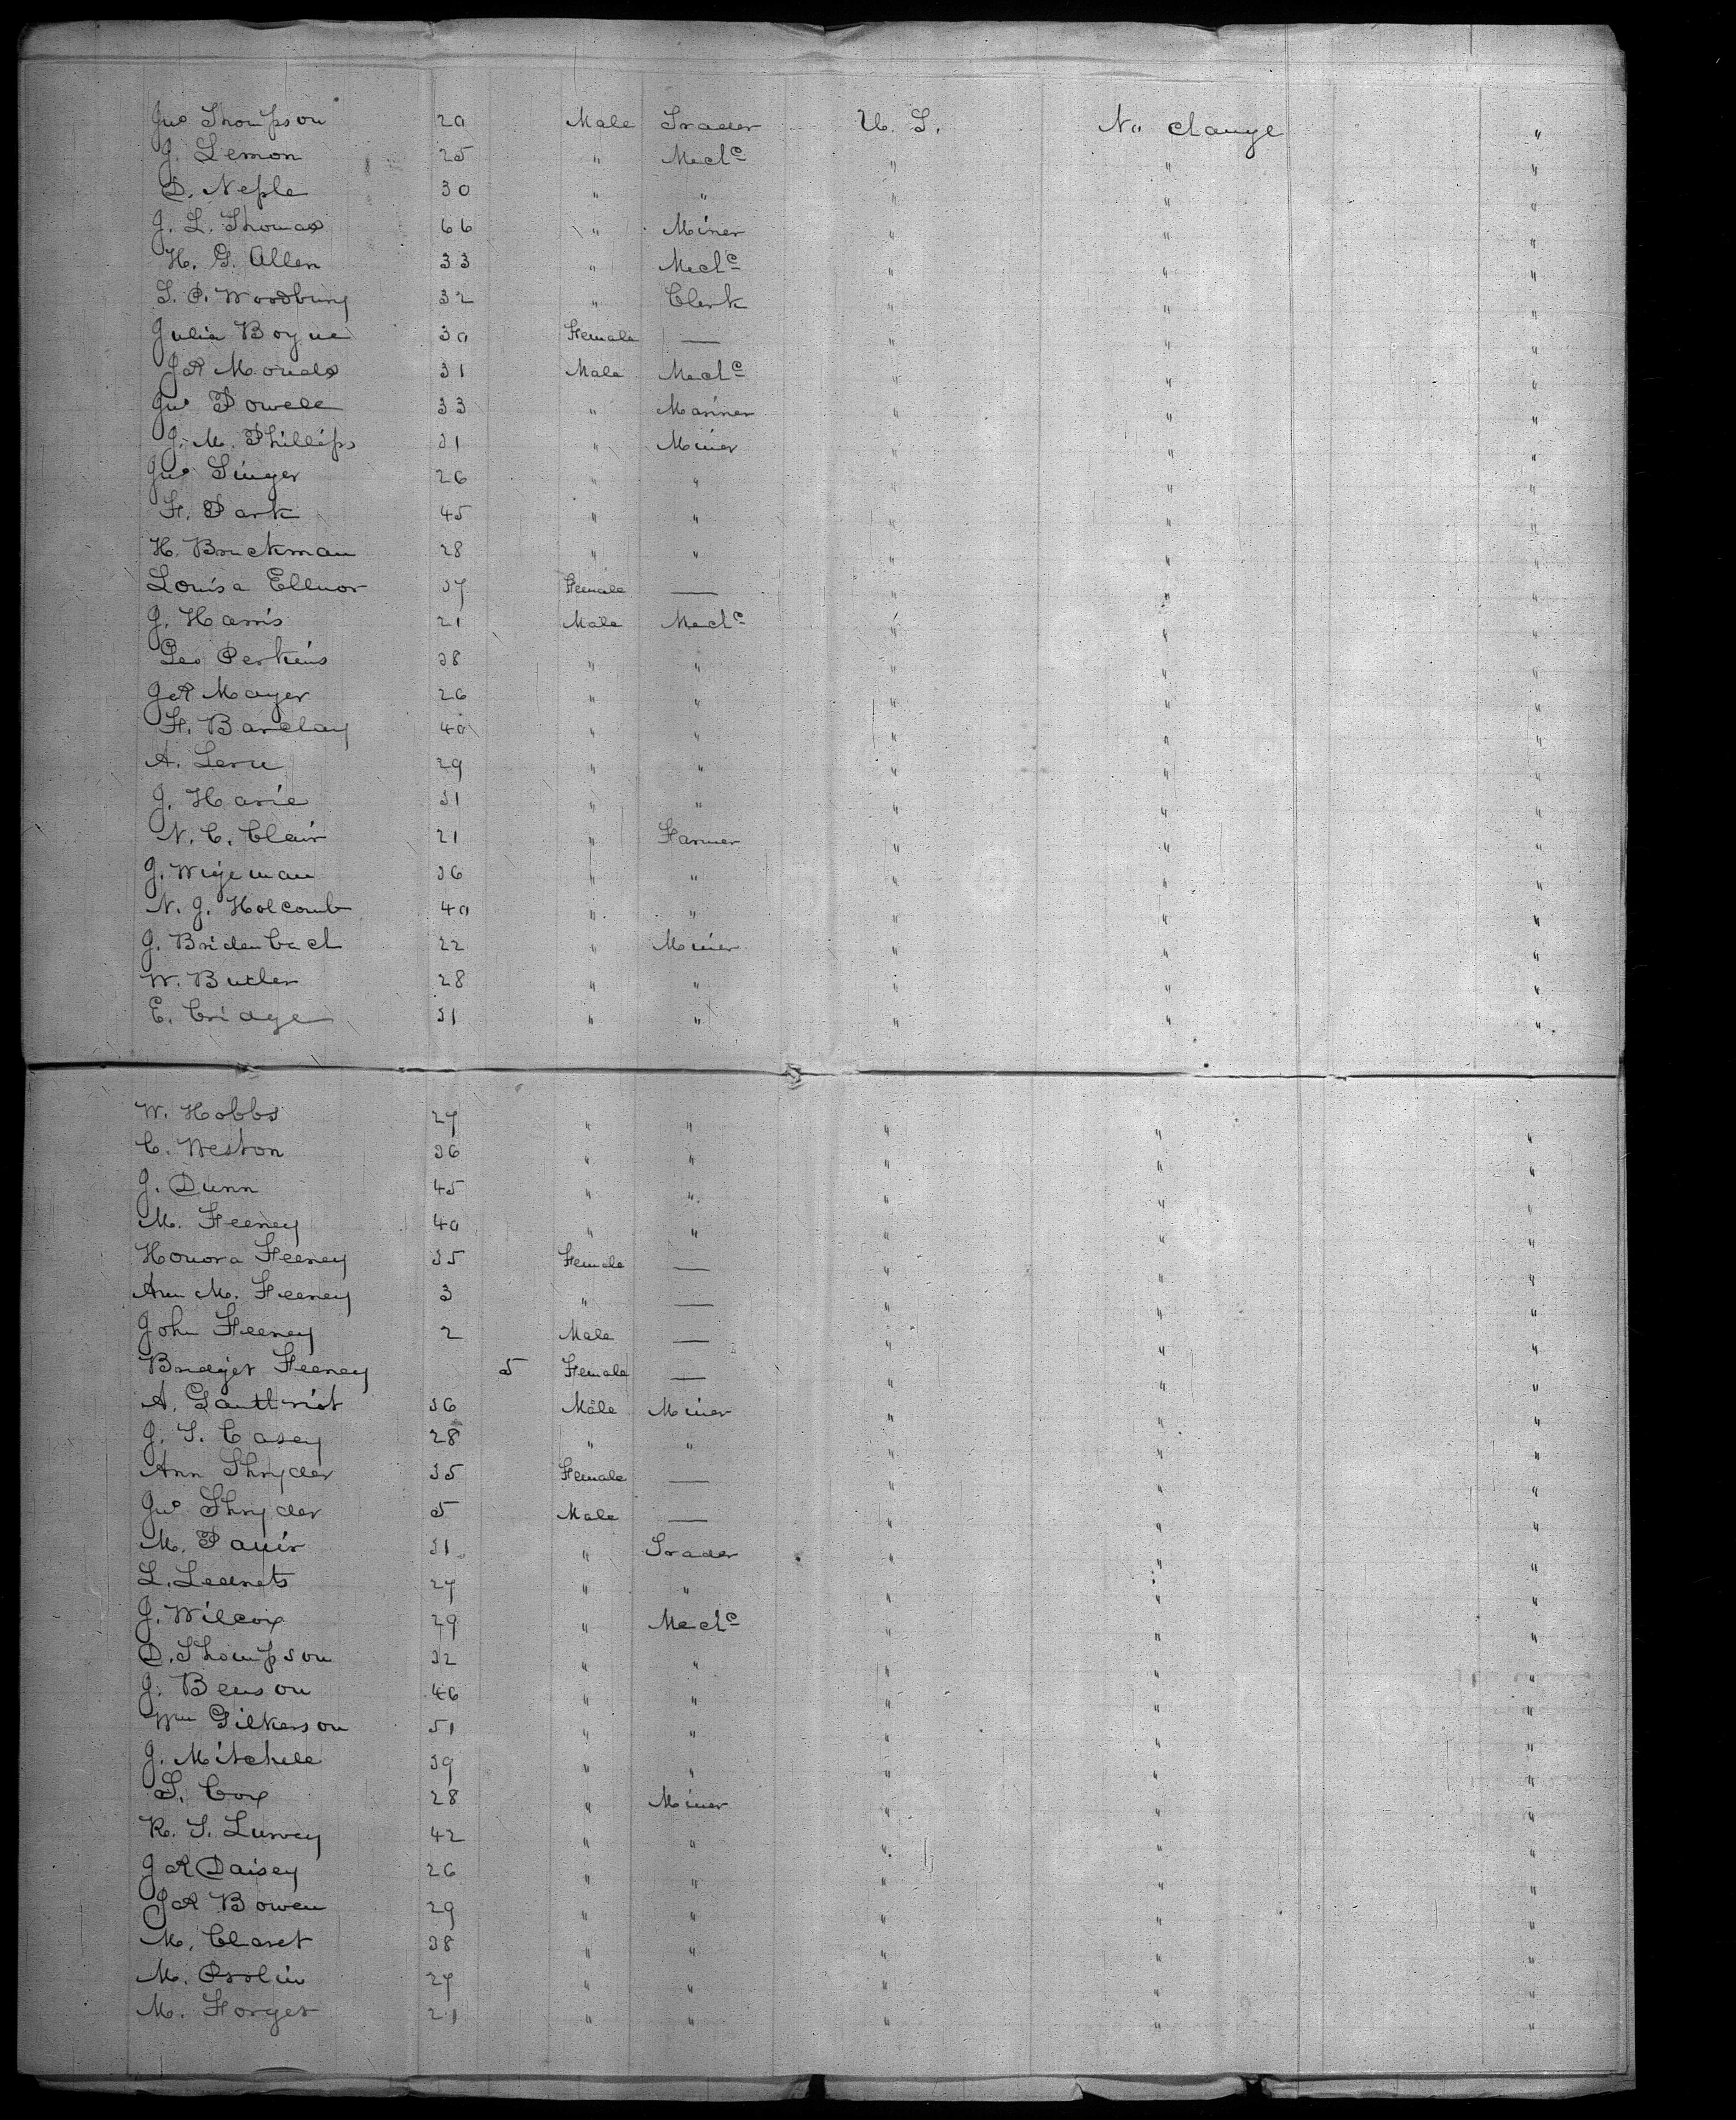 Jno Thompson 20 Male Trader U. S. No change "
J. Lemon 25 " Mechc " " "
D. Neple 30 " " " " "
J. L. Thomas 66 " Miner " " "
H. G. Allen 33 " Mechc " " "
S. P. Woodbury 32 " Clerk " " "
Julia Bogue 30 Female — " " "
31 Male Mechc " " "
Jno Powell 33 " Mariner " " "
J. M. Phillips 31 " Miner " " "
Jno Singer 26 " " " " "
F. Park 45 " " " " "
H. Bruckman 28 " " " " "
Louisa Ellnor 37 Female — " " "
J. Harris 21 Male Mechc " " "
Geo Perkins 38 " " " " "
Mayer 26 " " " " "
F. Barclay 40 " " " " "
A. 29 " " " " "
J. Harie 31 " " " " "
N. C. Clair 21 " Farmer " " "
J. Wigeman 36 " " " " "
N. J. Holcomb 40 " " " " "
J. Bridenbach 22 " Miner " " "
W. Butler 28 " " " " "
E. Cridge 31 " " " " "
W. Hobbs 27 " " " " "
C. Weston 36 " " " " "
J. Dunn 45 " " " " "
M. Feeney 40 " " " " "
Honora Feeney 35 Female — " " "
Ann M. Feeney 3 " — " " "
John Feeney 2 Male — " " "
Bridget Feeney 5 Female — " " "
A. Gauthriot 36 Male Miner " " "
J. T. Casey 28 " " " " "
Ann Shryder 35 Female — " " "
Jno Shryder 5 Male — " " "
M. 31 " Trader " " "
L. 27 " " " " "
J. Wilcox 29 " Mechc " " "
D. Thompson 32 " " " " "
J. Benson 46 " " " " "
Wm Gilkerson 51 " " " " "
J. Mitchell 39 " " " " "
S. Cox 28 " Miner " " "
R. S. 42 " " " " "
Daisey 26 " " " " "
Bowen 29 " " " " "
M. Claret 38 " " " " "
M. 27 " " " " "
M. Forget 21 " " " " "